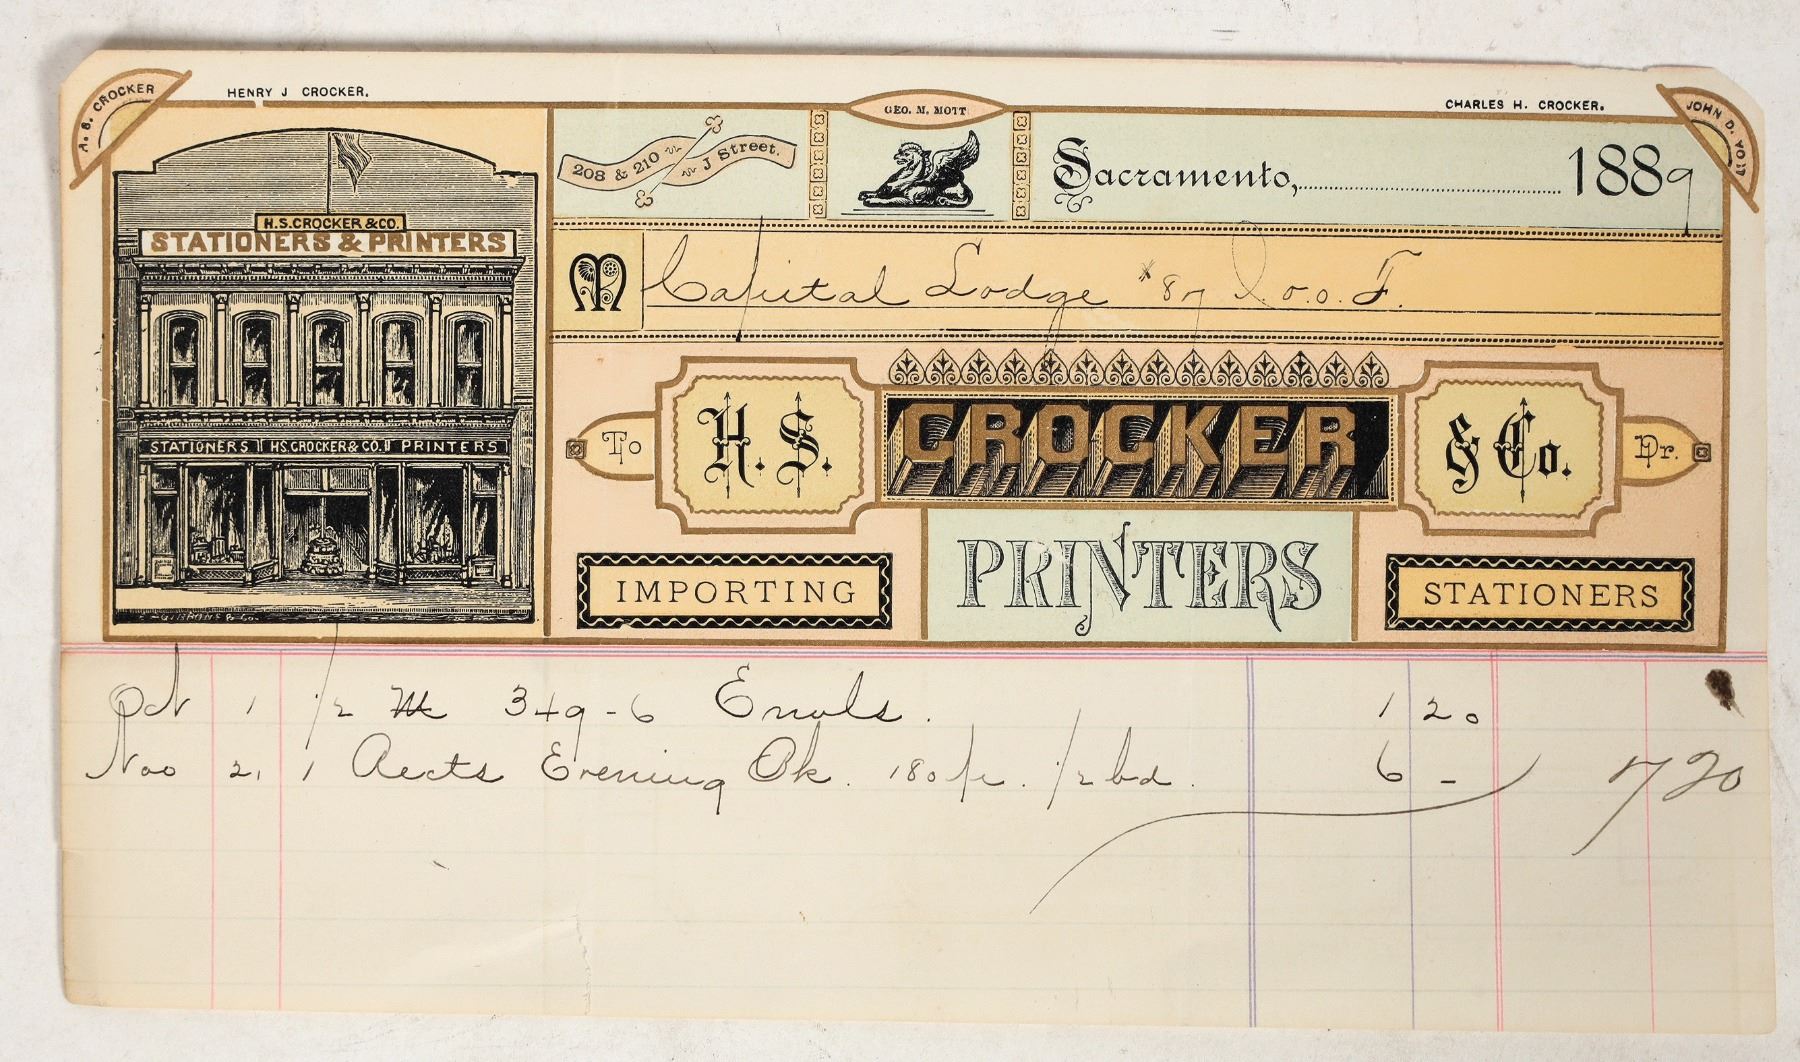 H. S. CROCKER
HENRY J CROCKER.
GEO. M. MOTT
CHARLES H. CROCKER.
JOHN D. YOST
208 & 210 J Street.
Sacramento, 1889
H.S. CROCKER & CO.
STATIONERS & PRINTERS
M Capital Lodge #87 I.O.O.F.
STATIONERS H.S. CROCKER & CO. PRINTERS
To H. S. CROCKER & Co. Dr.
PRINTERS
IMPORTING STATIONERS
GIBBONS & Co.
Oct 1 1/2 M 349-6 Envols. 1 20
Nov 21 1 Rects Evening Bk. 180 p. 1/2 bd. 6 - 7 20